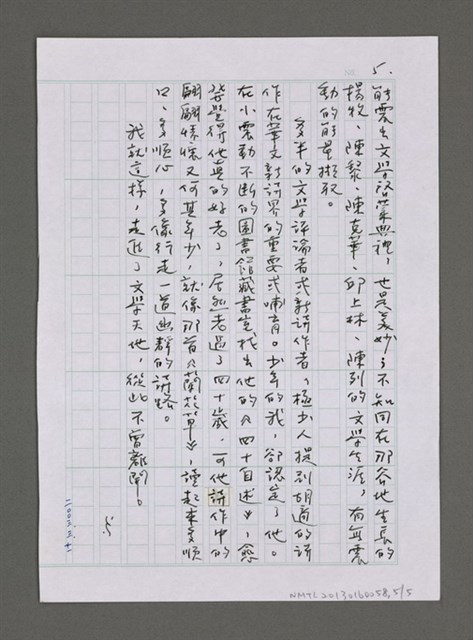 5.
的震出文學啓蒙典禮,也是美妙?不知同在那谷地生長的
楊牧、陳黎、陳克華、邱上林、陳列的文學生涯,有無震
動的能量擷取。
多半的文學評論者或新詩作者,極少人提到胡適的詩
作在華文新詩界的重要或哺育。少年的我,卻認定了他。
在小震動不斷的圖書館藏書室找出他的《四十自述》,愈
發覺得他真的好老了,居然老過了四十歲。可他詩作中的
翩翩情懷又何其年少,就像那首《蘭花草》,讀起來多順
口、多順心,多像行走一道幽靜的詩路。
我就這樣,走進了文學天地,從此不曾離開。
二〇〇六、三、十
5
NMTL20130160058,5/5